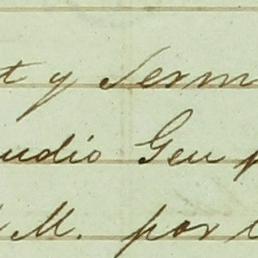 t y Serm
udio Geu p
M. por l